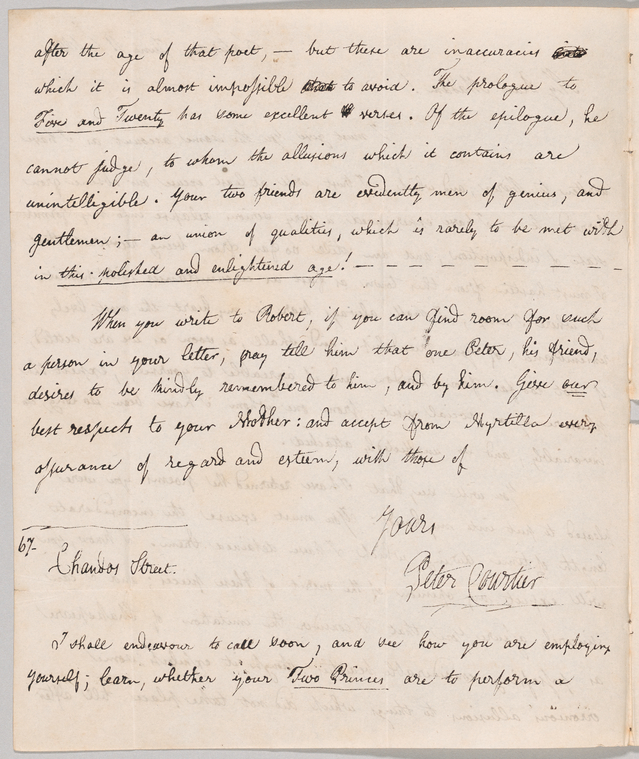 after the age of that poet, — but these are inaccuracies
which it is almost impossible to avoid. The prologue to
Five and Twenty has some excellent verses. Of the epilogue, he
cannot judge, to whom the allusions which it contains are
unintelligible. Your two friends are evidently men of genius, and
gentlemen; — an union of qualities, which is rarely to be met with
in this polished and enlightened age! — — — — — — — —
When you write to Robert, if you can find room for such
a person in your letter, pray tell him that one Peter, his friend,
desires to be kindly remembered to him, and by him. Give our
best respects to your Mother: and accept from Myrtilla every
assurance of regard and esteem, with those of
Yours
Peter Courtier
67-
Chandos Street.
I shall endeavour to call soon, and see how you are employing
yourself; learn, whether your Two Princes are to perform a